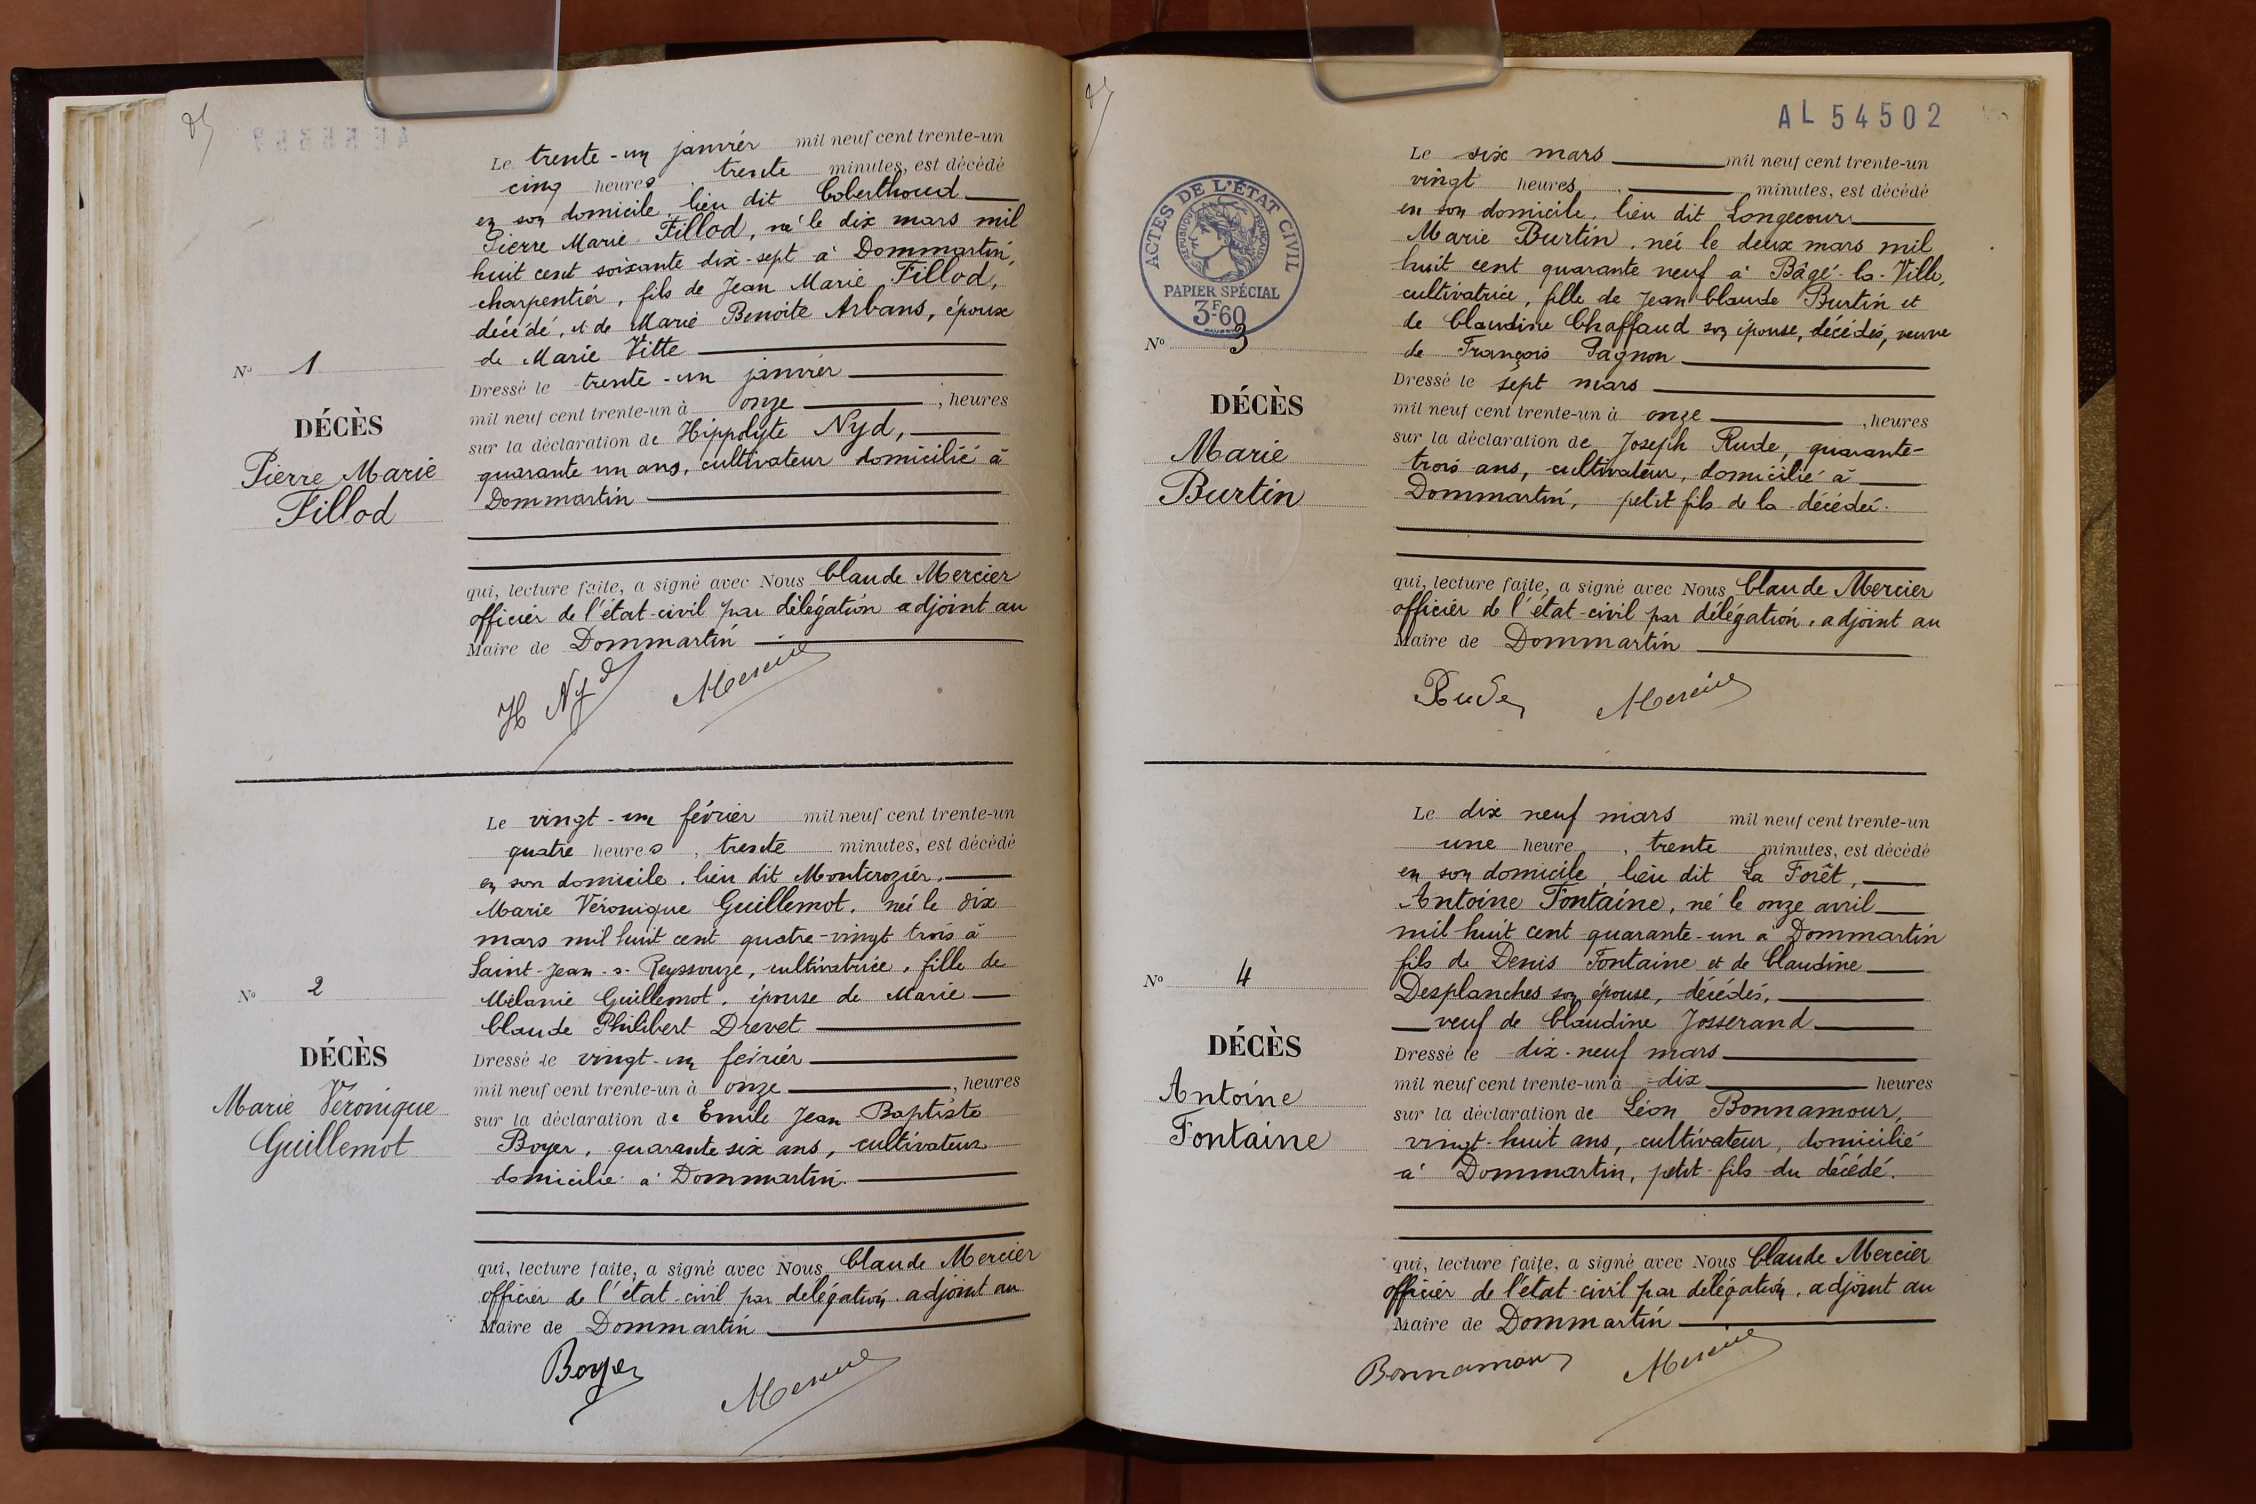 Le trente-un janvier mil neuf cent trente-un
cinq heures, trente minutes, est décédé
en son domicile, lieu dit Coberthoud
Pierre Marie Fillod, né le dix mars mil
huit cent soixante dix-sept à Dommartin,
charpentier, fils de Jean Marie Fillod,
décédé, et de Marie Benoite Arbans, époux
de Marie Vitte
N° 1
Dressé le trente-un janvier
mil neuf cent trente-un à onze, heures
DÉCÈS
sur la déclaration de Hippolyte Nyd,
Pierre Marie
quarante un ans, cultivateur domicilié à
Fillod
Dommartin
qui, lecture faite, a signé avec Nous Claude Mercier
officier de l'état-civil par délégation adjoint au
Maire de Dommartin
H Nyd Mercier
Le vingt-un février mil neuf cent trente-un
quatre heures, trente minutes, est décédé
en son domicile, lieu dit Montcrozier,
Marie Véronique Guillemot, née le dix
mars mil huit cent quatre-vingt trois à
Saint-Jean-s-Reyssouze, cultivatrice, fille de
N° 2
Mélanie Guillemot, épouse de Marie
Claude Philibert Drevet
DÉCÈS
Dressé le vingt-un février
mil neuf cent trente-un à onze, heures
Marie Véronique
sur la déclaration de Emile Jean Baptiste
Guillemot
Boyer, quarante six ans, cultivateur
domicilié à Dommartin.
qui, lecture faite, a signé avec Nous Claude Mercier
officier de l'état-civil par délégation adjoint au
Maire de Dommartin
Boyer Mercier
AL 54502
ACTES DE L'ÉTAT CIVIL
RÉPUBLIQUE FRANÇAISE
PAPIER SPÉCIAL
3F60
Le six mars mil neuf cent trente-un
vingt heures, minutes, est décédé
en son domicile, lieu dit Longecour
Marie Burtin, née le deux mars mil
huit cent quarante neuf à Bâgé-la-Ville,
cultivatrice, fille de Jean Claude Burtin et
de Claudine Chaffaud son épouse, décédés, veuve
N° 3
de François Pagnon
Dressé le sept mars
DÉCÈS
mil neuf cent trente-un à onze, heures
Marie
sur la déclaration de Joseph Rude, quarante-
trois ans, cultivateur, domicilié à
Burtin
Dommartin, petit fils de la décédée.
qui, lecture faite, a signé avec Nous Claude Mercier
officier de l'état-civil par délégation, adjoint au
Maire de Dommartin
Rude Mercier
Le dix neuf mars mil neuf cent trente-un
une heure, trente minutes, est décédé
en son domicile, lieu dit La Forêt,
Antoine Fontaine, né le onze avril
mil huit cent quarante-un à Dommartin
fils de Denis Fontaine et de Claudine
N° 4
Desplanches son épouse, décédés,
veuf de Claudine Josserand
DÉCÈS
Dressé le dix-neuf mars
mil neuf cent trente-un à dix heures
Antoine
sur la déclaration de Léon Bonnamour,
Fontaine
vingt-huit ans, cultivateur, domicilié
à Dommartin, petit-fils du décédé.
qui, lecture faite, a signé avec Nous Claude Mercier
officier de l'état-civil par délégation, adjoint au
Maire de Dommartin
Bonnamour Mercier